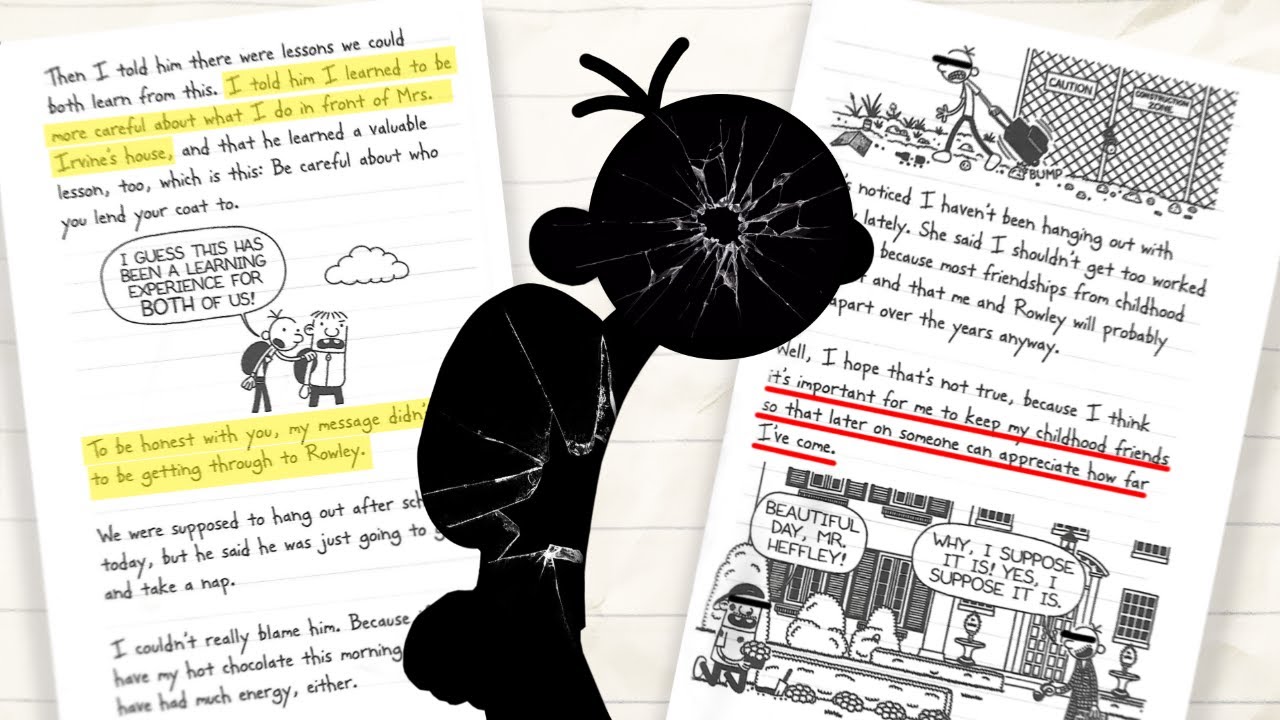 Then I told him there were lessons we could
both learn from this. I told him I learned to be
more careful about what I do in front of Mrs.
Irvine's house, and that he learned a valuable
lesson, too, which is this: Be careful about who
you lend your coat to.
I GUESS THIS HAS
BEEN A LEARNING
EXPERIENCE FOR
BOTH OF US!
To be honest with you, my message didn't
to be getting through to Rowley.
We were supposed to hang out after
today, but he said he was just going to
and take a nap.
I couldn't really blame him. Because
have my hot chocolate this morning
have had much energy, either.
CAUTION
CONSTRUCTION
ZONE
BUMP
noticed I haven't been hanging out with
lately. She said I shouldn't get too worked
because most friendships from childhood
and that me and Rowley will probably
apart over the years anyway.
Well, I hope that's not true, because I think
it's important for me to keep my childhood friends
so that later on someone can appreciate how far
I've come.
BEAUTIFUL
DAY, MR.
HEFFLEY!
WHY, I SUPPOSE
IT IS! YES, I
SUPPOSE IT IS.